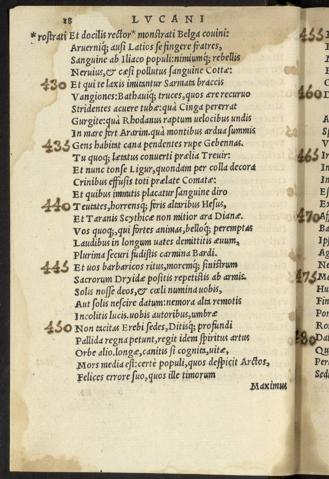 18 LVCANI
*rostrati Et docilis rector* monstrati Belga covini:
Aruerniq; ausi Latios se fingere fratres,
Sanguine ab Iliaco populi: nimiumq; rebellis
Neruius, & cæsi pollutus sanguine Cottæ:
430 Et qui te laxis imitantur Sarmata braccis
Vangiones: Batauiq; truces, quos ære recuruo
Stridentes acuere tubæ: quà Cinga pererrat
Gurgite: quà Rhodanus raptum uelocibus undis
In mare fert Ararim. quà montibus ardua summis
435 Gens habitat cana pendentes rupe Gebennas.
Tu quoq; lætatus conuerti prælia Treuir:
Et nunc tonse Ligur, quondam per colla decora
Crinibus effusis toti prælate Comatæ:
Et quibus immitis placatur sanguine diro
440 Teutates, horrensq; feris altaribus Hesus,
Et Taranis Scythicæ non mitior ara Dianæ.
Vos quoq;, qui fortes animas, belloq; peremptas
Laudibus in longum uates demittitis æuum,
Plurima securi fudistis carmina Bardi.
445 Et uos barbaricos ritus, moremq; sinistrum
Sacrorum Dryidæ positis repetistis ab armis.
Solis nosse deos, & cœli numina uobis,
Aut solis nescire datum: nemora alta remotis
Incolitis lucis. uobis autoribus, umbræ
450 Non tacitas Erebi sedes, Ditisq; profundi
Pallida regna petunt, regit idem spiritus artus
Orbe alio. longæ, canitis si cognita, uitæ,
Mors media est: certè populi, quos despicit Arctos,
Felices errore suo, quos ille timorum
Maximus
455
460
465
470
475
480